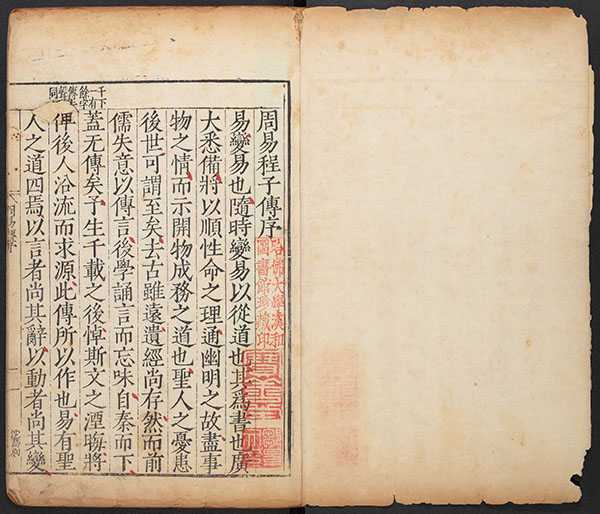 周易程子傳序
哈佛大學漢和
圖書館珍藏印
易變易也隨時變易以從道也其爲書也廣
大悉備將以順性命之理通幽明之故盡事
物之情而示開物成務之道也聖人之憂患
後世可謂至矣去古雖遠遺經尚存然而前
儒失意以傳言後學誦言而忘味自秦而下
千下
一有
餘字
蓋无傳矣予生千載之後悼斯文之湮晦將
俾後人沿流而求源此傳所以作也易有聖
人之道四焉以言者尚其辭以動者尚其變